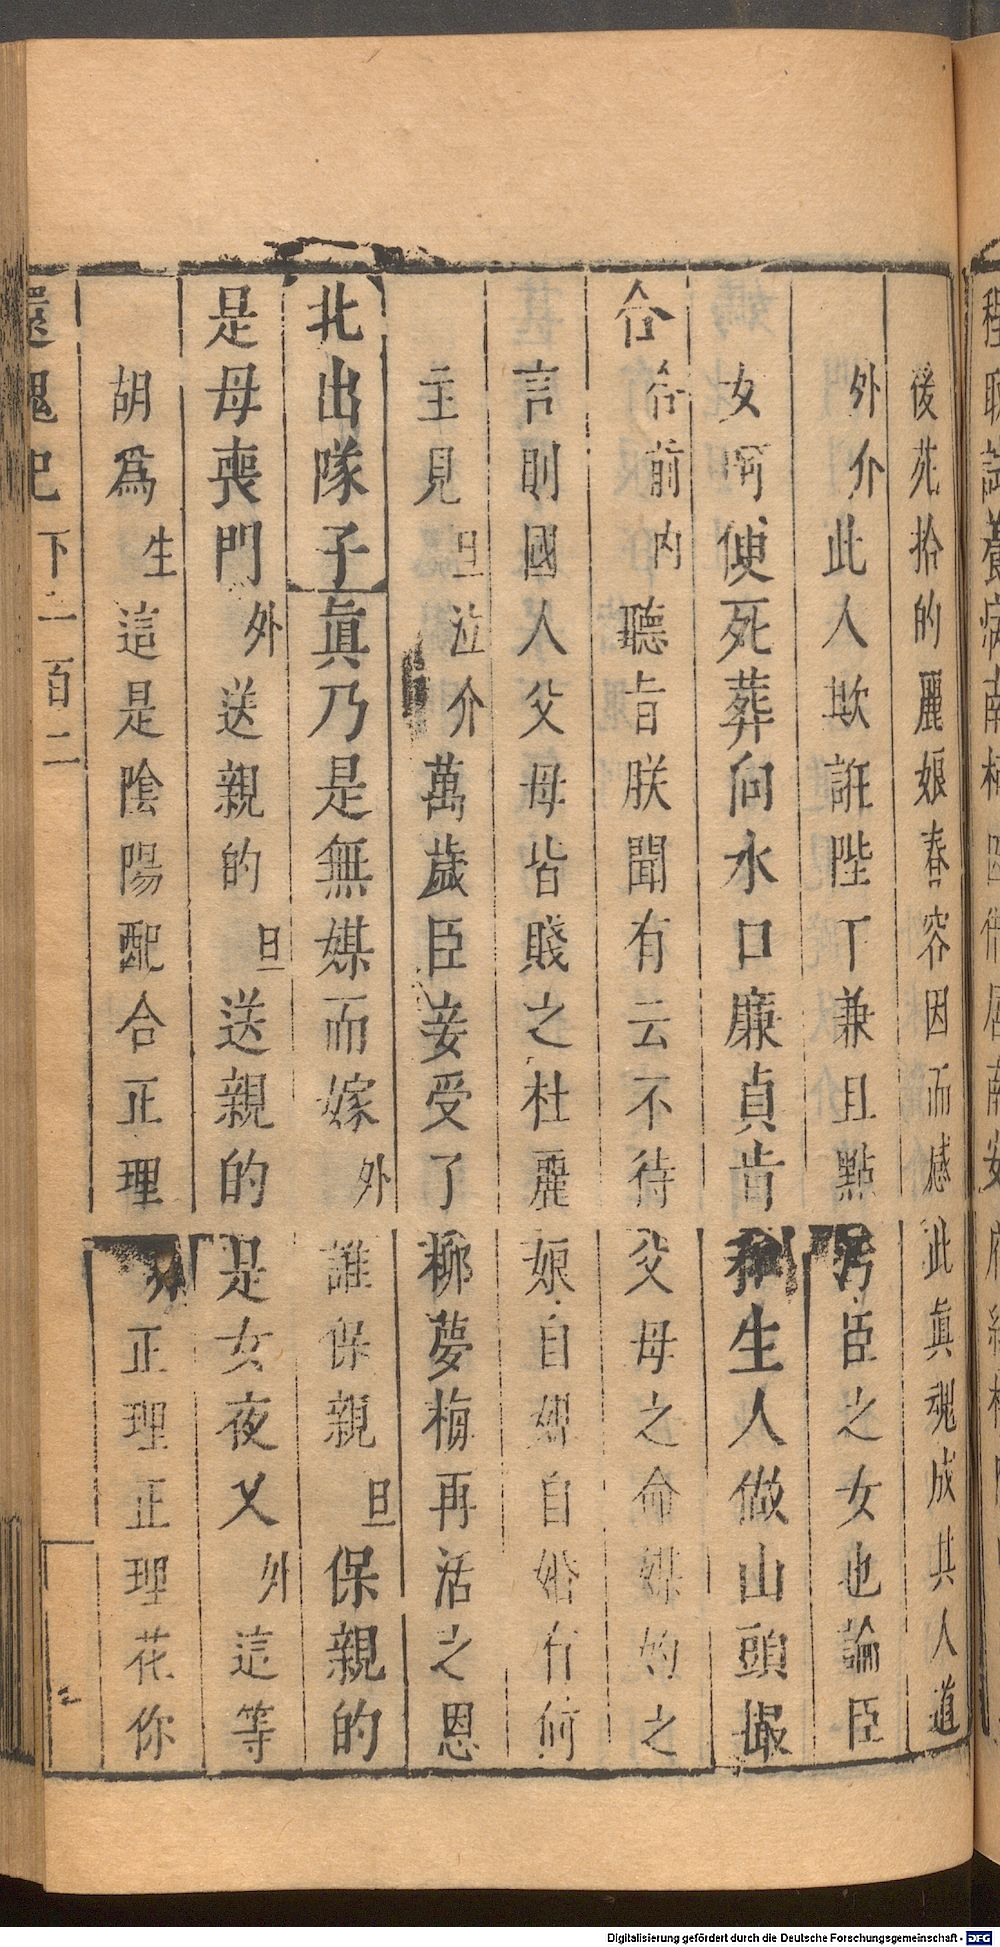 後苑拾的麗娘春容因而感此眞魂成其人道
外介此人欺誑陛丁兼且點汚臣之女也論臣
女呵便死葬向水口廉貞肯和生人做山頭撮
合 合前內聽旨朕聞有云不待父母之命媒妁之
言則國人父母皆賤之杜麗娘自媒自婚有何
主見 旦泣介萬歲臣妾受了柳夢梅再活之恩
北出隊子眞乃是無媒而嫁 外誰保親 旦保親的
是母喪門 外送親的 旦送親的是女夜叉 外這等
胡爲 生這是陰陽配合正理 外正理正理花你
還魂記 下 一百二
Digitalisierung gefördert durch die Deutsche Forschungsgemeinschaft - DFG